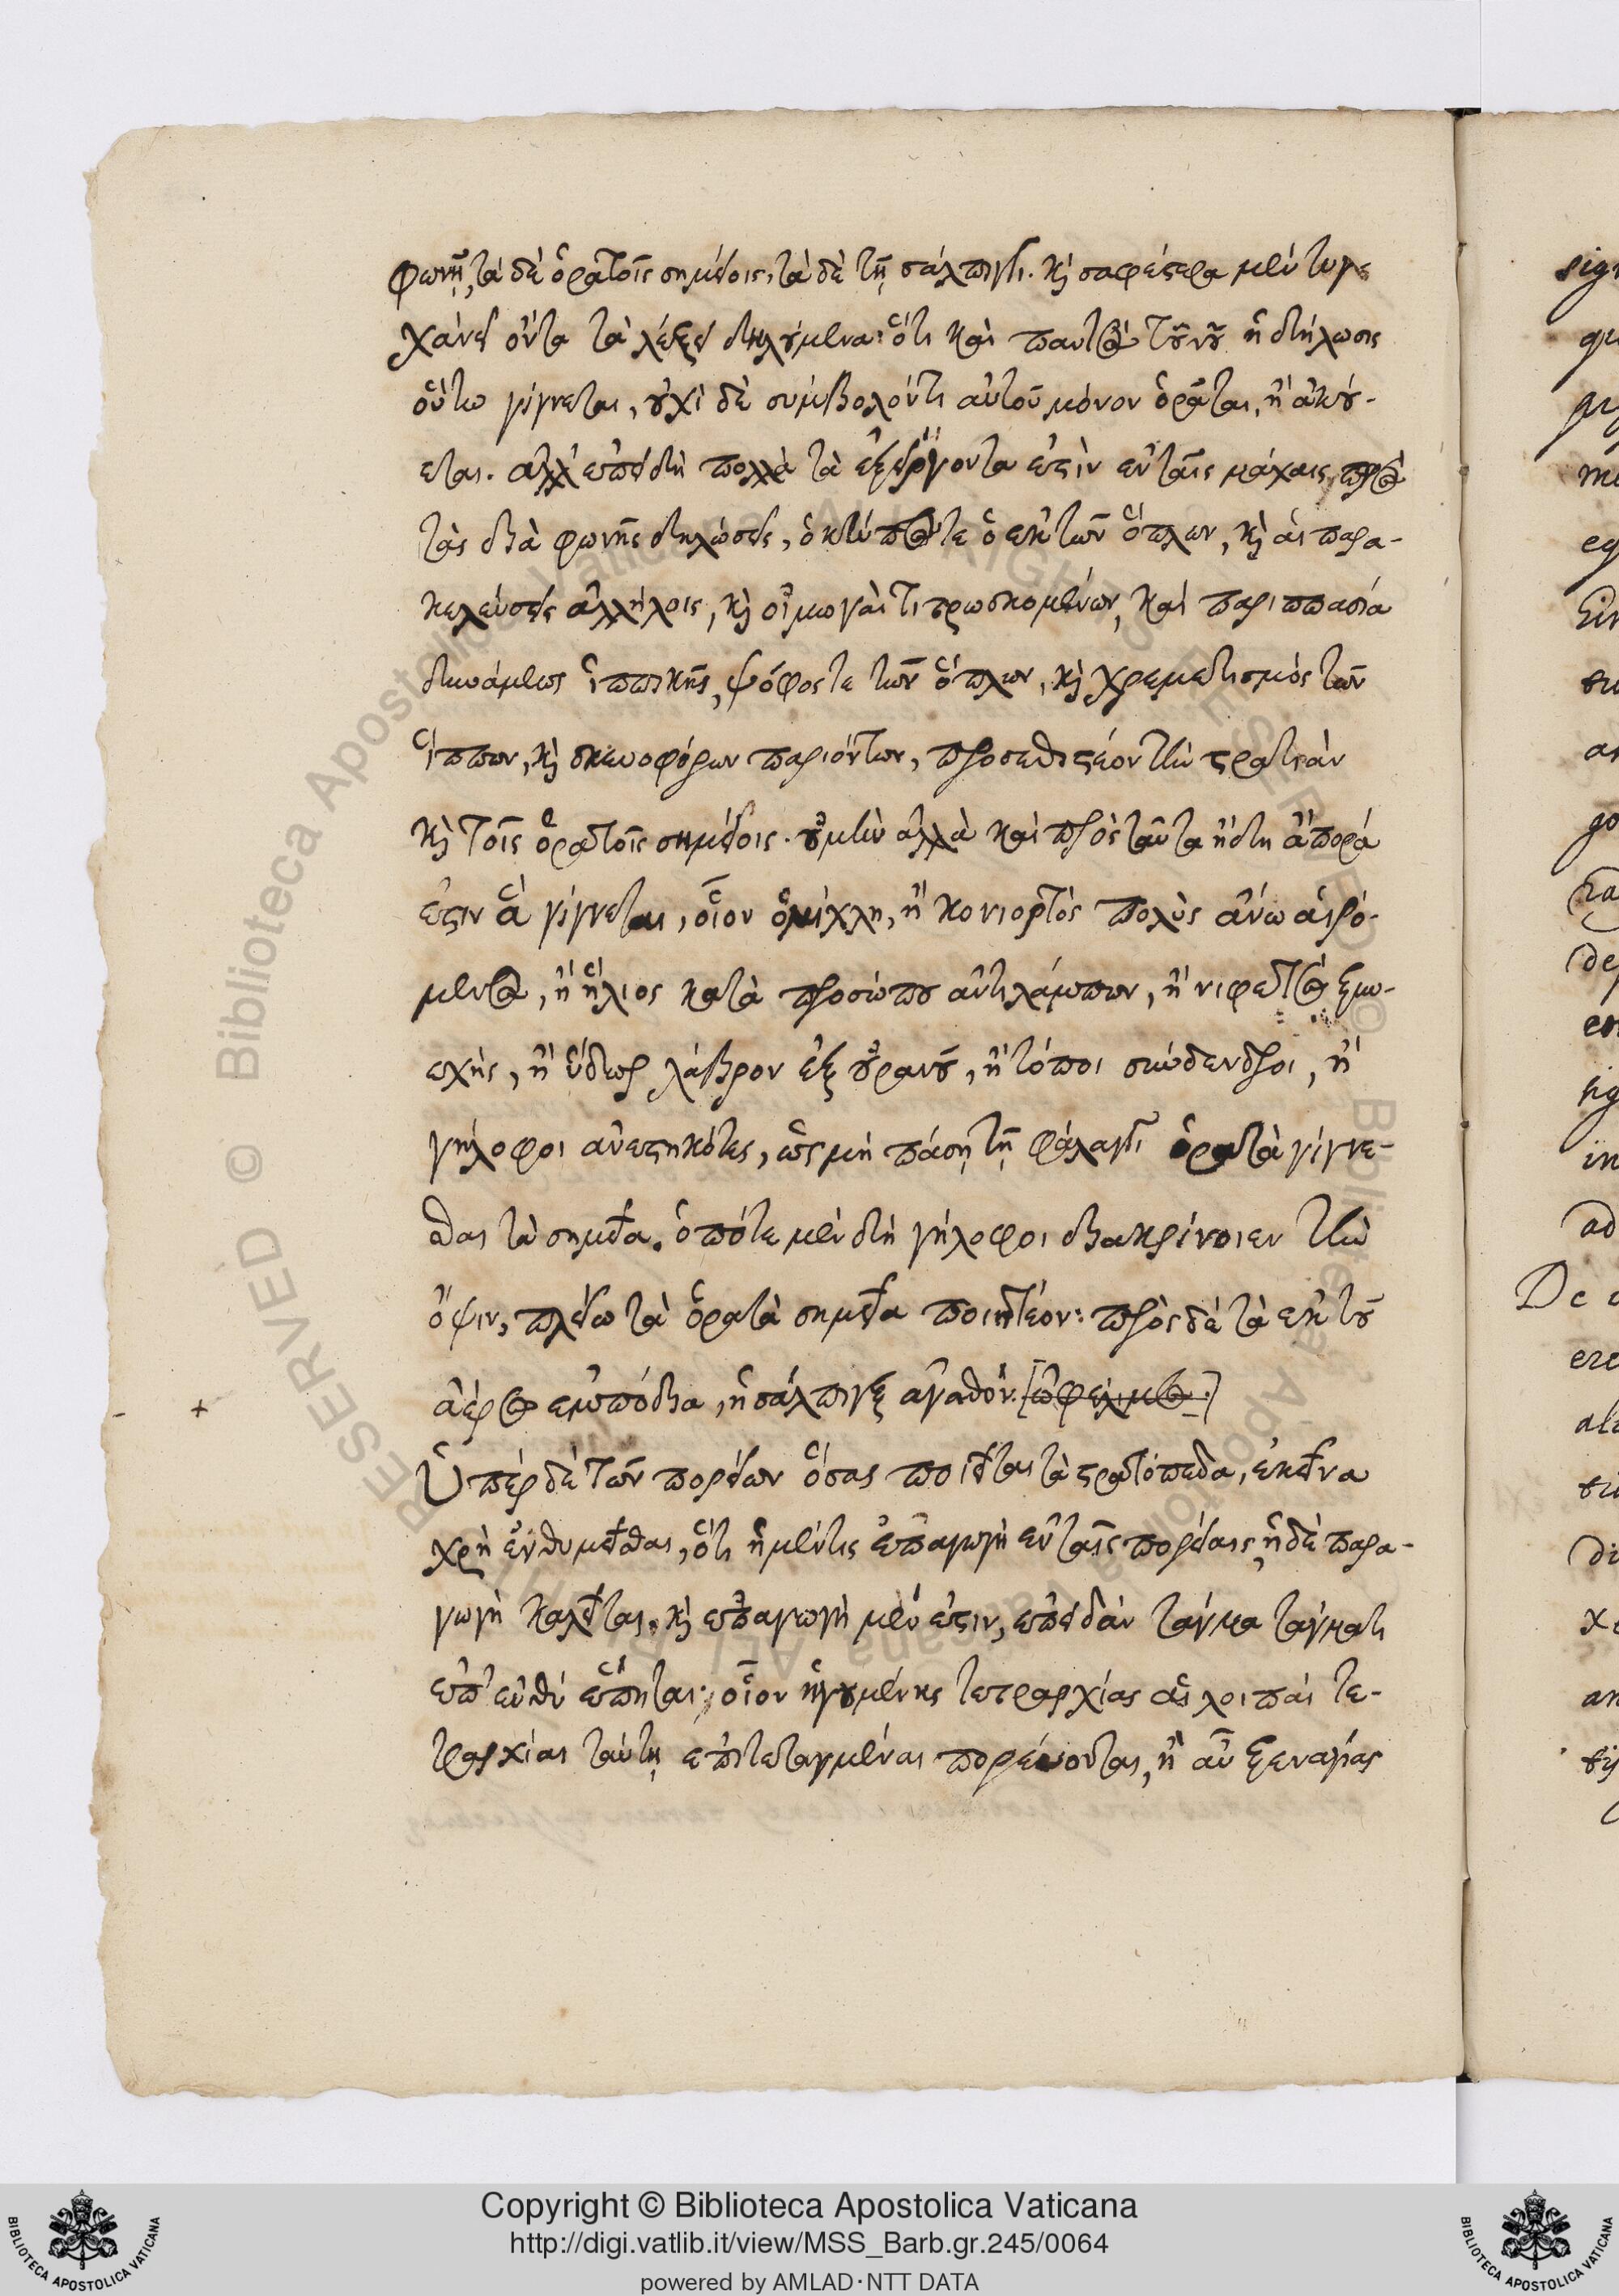 φωνῇ, τὰ δὲ ὁρατοῖς σημείοις, τὰ δὲ τῇ σάλπιγγι. κὶ σαφέστερα μὲν τυγ
χάνει ὄντα τὰ λέξει δηλούμενα· ὅτι καὶ παντὸς τοῦ νοῦ ἡ δήλωσις
οὕτω γίγνεται, οὐχὶ δὲ σύμβολόν τι αὐτοῦ μόνον ὁρᾶται, ἢ ἀκού-
εται. ἀλλ' ἐπειδὴ πολλὰ τὰ ἐξείργοντα ἐστὶν ἐν ταῖς μάχαις πρὸς
τὰς διὰ φωνῆς δηλώσεις, ὁ κτύπος τε ὁ ἐκ τῶν ὅπλων, κὶ αἱ παρα-
κελεύσεις ἀλλήλοις, κὶ οἰμωγαὶ τιτρωσκομένων, καὶ παριππασία
δυνάμεως ἱππικῆς, ψόφος τε τῶν ὅπλων, κὶ χρεμετισμὸς τῶν
ἵππων, κὶ σκευοφόρων παριόντων, προσεθιστέον τὴν στρατιὰν
κὶ τοῖς ὁρατοῖς σημείοις. οὐ μὴν ἀλλὰ καὶ πρὸς ταῦτα ἤδη ἄπορά
ἐστιν ἃ γίγνεται, οἷον ὁμίχλη, ἢ κονιορτὸς πολὺς ἄνω αἰρό-
μενος, ἢ ἥλιος κατὰ προσώπου ἀντιλάμπων, ἢ νιφετὸς ξυν-
εχής, ἢ ὕδωρ λάβρον ἐξ οὐρανοῦ, ἢ τόποι σύνδενδροι, ἢ
γήλοφοι ἀνεστηκότες, ὡς μὴ πάσῃ τῇ φάλαγγι ὁρατὰ γίγνε-
σθαι τὰ σημεῖα. ὁπότε μὲν δὴ γήλοφοι διακρίνοιεν τὴν
ὄψιν, πλείω τὰ ὁρατὰ σημεῖα ποιητέον: πρὸς δὲ τὰ ἐκ τοῦ
ἀέρος ἐμπόδια, ἡ σάλπιγξ ἀγαθόν. [ὠφέλιμος.]
Ὑπὲρ δὲ τῶν πορειῶν ὅσας ποιεῖται τὰ στρατόπεδα, ἐκεῖνα
χρὴ ἐνθυμεῖσθαι, ὅτι ἡ μέν τις ἐπαγωγὴ ἐν ταῖς πορείαις, ἡ δὲ παρα-
γωγὴ καλεῖται, κὶ ἐπαγωγὴ μέν ἐστιν, ἐπειδὰν τάγμα τάγματι
ἐπ' εὐθὺ ἕπηται· οἷον ἡγουμένης τετραρχίας αἱ λοιπαὶ τε-
τραρχίαι ταύτῃ ἐπιτεταγμέναι πορεύονται, ἢ αὖ ξεναγίας
Copyright © Biblioteca Apostolica Vaticana
http://digi.vatlib.it/view/MSS_Barb.gr.245/0064
powered by AMLAD·NTT DATA